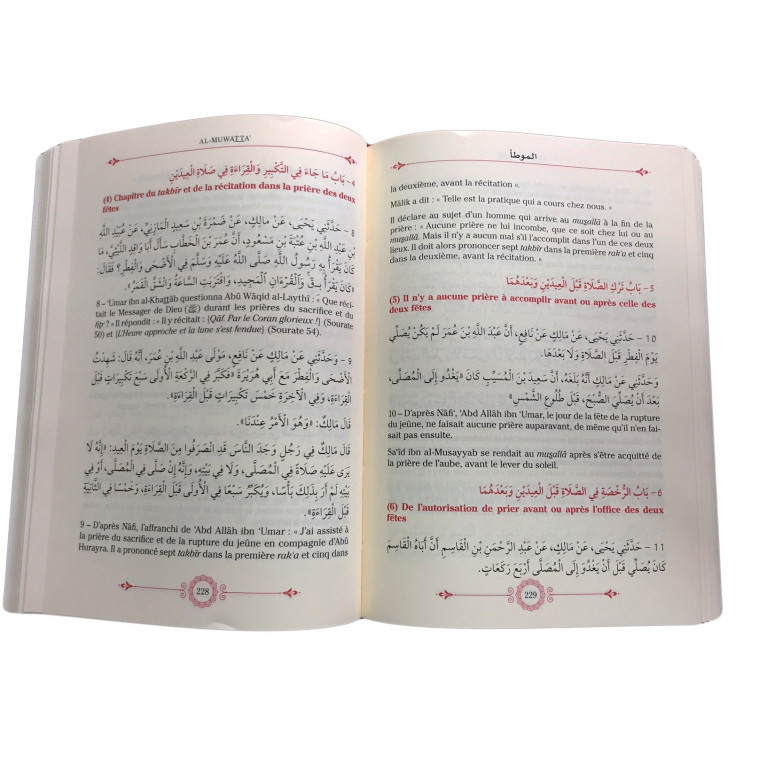 AL-MUWAṬṬA'
4 – بَابُ مَا جَاءَ فِي التَّكْبِيرِ وَالْقِرَاءَةِ فِي صَلَاةِ الْعِيدَيْنِ
(4) Chapitre du takbîr et de la récitation dans la prière des deux
fêtes
8 – حَدَّثَنِي يَحْيَى، عَنْ مَالِكٍ، عَنْ ضَمْرَةَ بْنِ سَعِيدٍ الْمَازِنِيِّ، عَنْ عُبَيْدِ اللَّهِ
بْنِ عَبْدِ اللَّهِ بْنِ عُتْبَةَ بْنِ مَسْعُودٍ، أَنَّ عُمَرَ بْنَ الْخَطَّابِ سَأَلَ أَبَا وَاقِدٍ اللَّيْثِيَّ، مَا
كَانَ يَقْرَأُ بِهِ رَسُولُ اللَّهِ صَلَّى اللَّهُ عَلَيْهِ وَسَلَّمَ فِي الْأَضْحَى وَالْفِطْرِ؟ فَقَالَ:
كَانَ يَقْرَأُ بِـقَ وَالْقُرْءَانِ الْمَجِيدِ، وَاقْتَرَبَتِ السَّاعَةُ وَانْشَقَّ الْقَمَرُ».
8 – ‘Umar ibn al-Khaṭṭâb questionna Abû Wâqid al-Laythî : « Que réci-
tait le Messager de Dieu (ﷺ) durant les prières du sacrifice et du
fiṭr ? » Il répondit : « Il y récitait : [Qâf. Par le Coran glorieux !] (Sourate
50) et [L'Heure approche et la lune s'est fendue] (Sourate 54).
9 – وَحَدَّثَنِي عَنْ مَالِكٍ عَنْ نَافِعٍ، مَوْلَى عَبْدِ اللَّهِ بْنِ عُمَرَ، أَنَّهُ قَالَ: شَهِدْتُ
الْأَضْحَى وَالْفِطْرَ مَعَ أَبِي هُرَيْرَةَ «فَكَبَّرَ فِي الرَّكْعَةِ الْأُولَى سَبْعَ تَكْبِيرَاتٍ قَبْلَ
الْقِرَاءَةِ، وَفِي الْآخِرَةِ خَمْسَ تَكْبِيرَاتٍ قَبْلَ الْقِرَاءَةِ».
قَالَ مَالِكٌ: «وَهُوَ الْأَمْرُ عِنْدَنَا».
قَالَ مَالِكٌ فِي رَجُلٍ وَجَدَ النَّاسَ قَدِ انْصَرَفُوا مِنَ الصَّلَاةِ يَوْمَ الْعِيدِ: «إِنَّهُ لَا
يَرَى عَلَيْهِ صَلَاةً فِي الْمُصَلَّى، وَلَا فِي بَيْتِهِ، وَإِنَّهُ إِنْ صَلَّى فِي الْمُصَلَّى، أَوْ فِي
بَيْتِهِ لَمْ أَرَ بِذَلِكَ بَأْسًا، وَيُكَبِّرُ سَبْعًا فِي الْأُولَى قَبْلَ الْقِرَاءَةِ، وَخَمْسًا فِي الثَّانِيَةِ
قَبْلَ الْقِرَاءَةِ».
9 – D'après Nâfi, l'affranchi de ‘Abd Allâh ibn ‘Umar : « J'ai assisté à
la prière du sacrifice et de la rupture du jeûne en compagnie d'Abû
Hurayra. Il a prononcé sept takbîr dans la première rak‘a et cinq dans
228
الموطأ
la deuxième, avant la récitation ».
Mâlik a dit : « Telle est la pratique qui a cours chez nous. »
Il déclare au sujet d'un homme qui arrive au muṣallâ à la fin de la
prière : « Aucune prière ne lui incombe, que ce soit chez lui ou au
muṣallâ. Mais il n'y a aucun mal s'il l'accomplit dans l'un de ces deux
lieux. Il doit alors prononcer sept takbîr dans la première rak‘a et cinq
dans la deuxième, avant la récitation. »
5 – بَابُ تَرْكِ الصَّلَاةِ قَبْلَ الْعِيدَيْنِ وَبَعْدَهُمَا
(5) Il n'y a aucune prière à accomplir avant ou après celle des
deux fêtes
10 – حَدَّثَنِي يَحْيَى، عَنْ مَالِكٍ عَنْ نَافِعٍ، أَنَّ عَبْدَ اللَّهِ بْنَ عُمَرَ لَمْ يَكُنْ يُصَلِّي
يَوْمَ الْفِطْرِ قَبْلَ الصَّلَاةِ وَلَا بَعْدَهَا.
وَحَدَّثَنِي عَنْ مَالِكٍ أَنَّهُ بَلَغَهُ، أَنَّ سَعِيدَ بْنَ الْمُسَيِّبِ كَانَ «يَغْدُو إِلَى الْمُصَلَّى،
بَعْدَ أَنْ يُصَلِّيَ الصُّبْحَ، قَبْلَ طُلُوعِ الشَّمْسِ»
10 – D'après Nâfi‘, ‘Abd Allâh ibn ‘Umar, le jour de la fête de la rupture
du jeûne, ne faisait aucune prière auparavant, de même qu'il n'en fai-
sait pas ensuite.
Sa‘îd ibn al-Musayyab se rendait au muṣallâ après s'être acquitté de
la prière de l'aube, avant le lever du soleil.
6 – بَابُ الرُّخْصَةِ فِي الصَّلَاةِ قَبْلَ الْعِيدَيْنِ وَبَعْدَهُمَا
(6) De l'autorisation de prier avant ou après l'office des deux
fêtes
11 – حَدَّثَنِي يَحْيَى، عَنْ مَالِكٍ، عَنْ عَبْدِ الرَّحْمَنِ بْنِ الْقَاسِمِ أَنَّ أَبَاهُ الْقَاسِمَ
كَانَ يُصَلِّي قَبْلَ أَنْ يَغْدُوَ إِلَى الْمُصَلَّى أَرْبَعَ رَكَعَاتٍ.
229